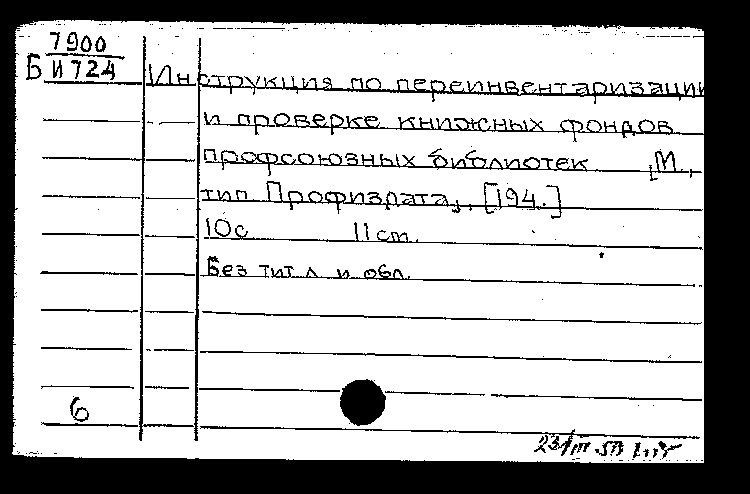 7900
Б И724
Инструкция по переинвентаризации
и проверке книжных фондов
профсоюзных библиотек [М.,
тип Профиздата], [194.]
10с 11 ст.
Без тит л и обл.
6
23/III